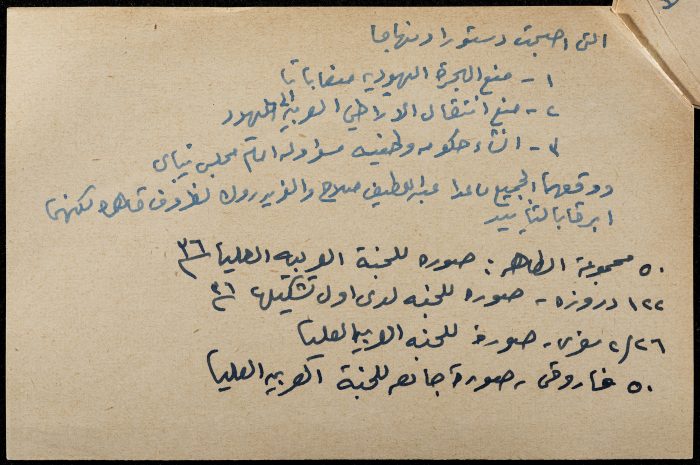 التي اصبحت دستورا ومنهاجا
١ - منع الهجرة اليهودية منعا باتا
٢ - منع انتقال الاراضي العربية الى اليهود
٣ - انشاء حكومه وطنيه مسؤوله امام مجلس نيابي
ووقعها الجميع ماعدا عبد اللطيف صلاح والفريد روك لظروف قاهره لكنهما
ابرقا بالتأييد
٥٠ مجموعة الطاهر: صوره للجنة العربيه العليا ٣٦
١٢٢ دروزه - صوره للجنه لدى اول تشكيلها ٣٦
٢/٢٦ - صورة للجنه العربيه العليا
٥٠ فاروقي - صورة جامعه للجنة العربيه العليا